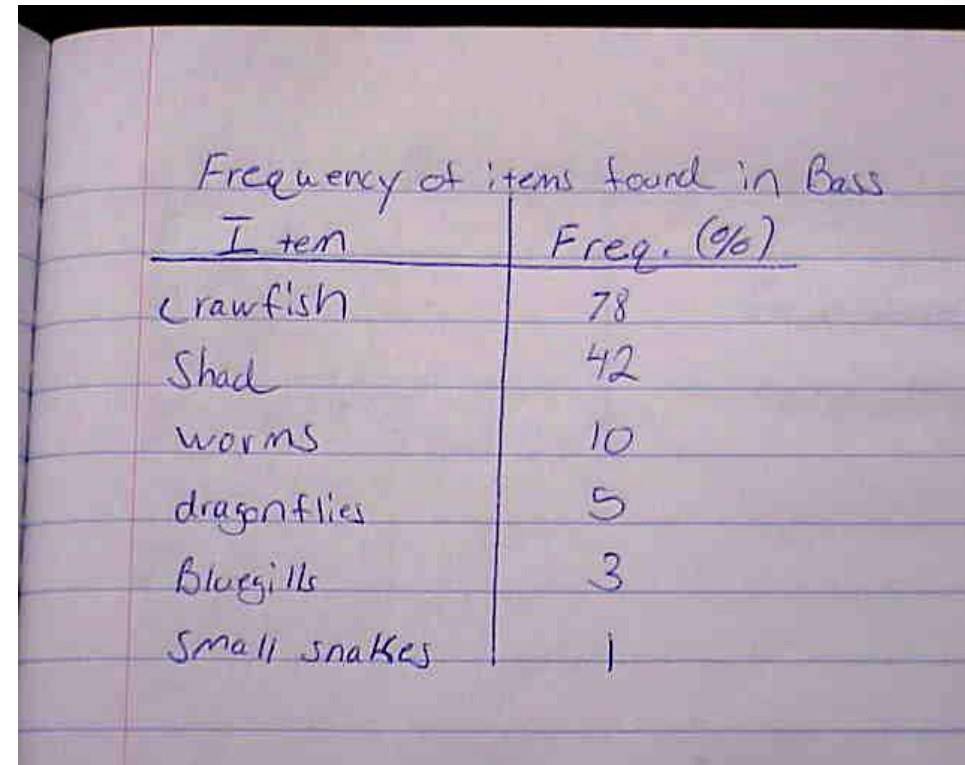 Frequency of items found in Bass
Item Freq. (%)
crawfish 78
Shad 42
worms 10
dragonflies 5
Bluegills 3
Small snakes 1